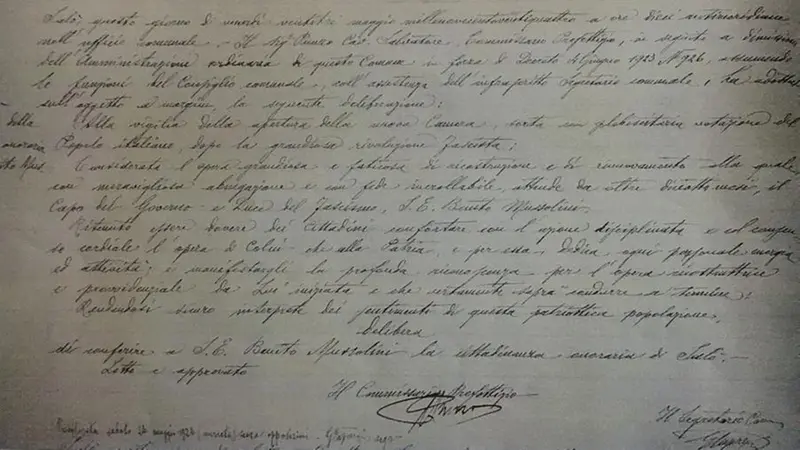 Salò, questo giorno di venerdì ventitre maggio millenovecentoventiquattro a ore dieci antimeridiane
nell'ufficio comunale - Il Sig. Punzo Cav. Salvatore, Commissario Prefettizio, in seguito a dimissioni
dell'Amministrazione ordinaria di questo Comune in forza di Decreto 4 Giugno 1923 N° 926, assumendo
le funzioni del Consiglio comunale, coll'assistenza dell'infrascritto Segretario comunale, ha adottato
sull'oggetto a margine, la seguente deliberazione:
della Alla vigilia della apertura della nuova Camera, sorta con plebiscitaria votazione del
onoraria Popolo italiano, dopo la grandiosa rivoluzione Fascista;
Considerata l'opera grandiosa e faticosa di ricostruzione e di rinnovamento alla quale,
con meravigliosa abnegazione e con fede incrollabile, attende da oltre diciotto mesi, il
Capo del Governo e Duce del Fascismo, S. E. Benito Mussolini.
Ritenuto essere dovere dei Cittadini confortare con l'opera disciplinata e col
cordiale l'opera di Colui che alla Patria, e per essa, dedica ogni personale energia
ed attività; e manifestargli la profonda riconoscenza per l'opera
e provvidenziale da Lui iniziata e che certamente saprà condurre a termine;
Rendendosi sicuro interprete dei sentimenti di questa patriottica popolazione,
delibera
di conferire a S. E. Benito Mussolini la cittadinanza onoraria di Salò.-
Letto e approvato
Il Commissario Prefettizio
Il Segretario Com